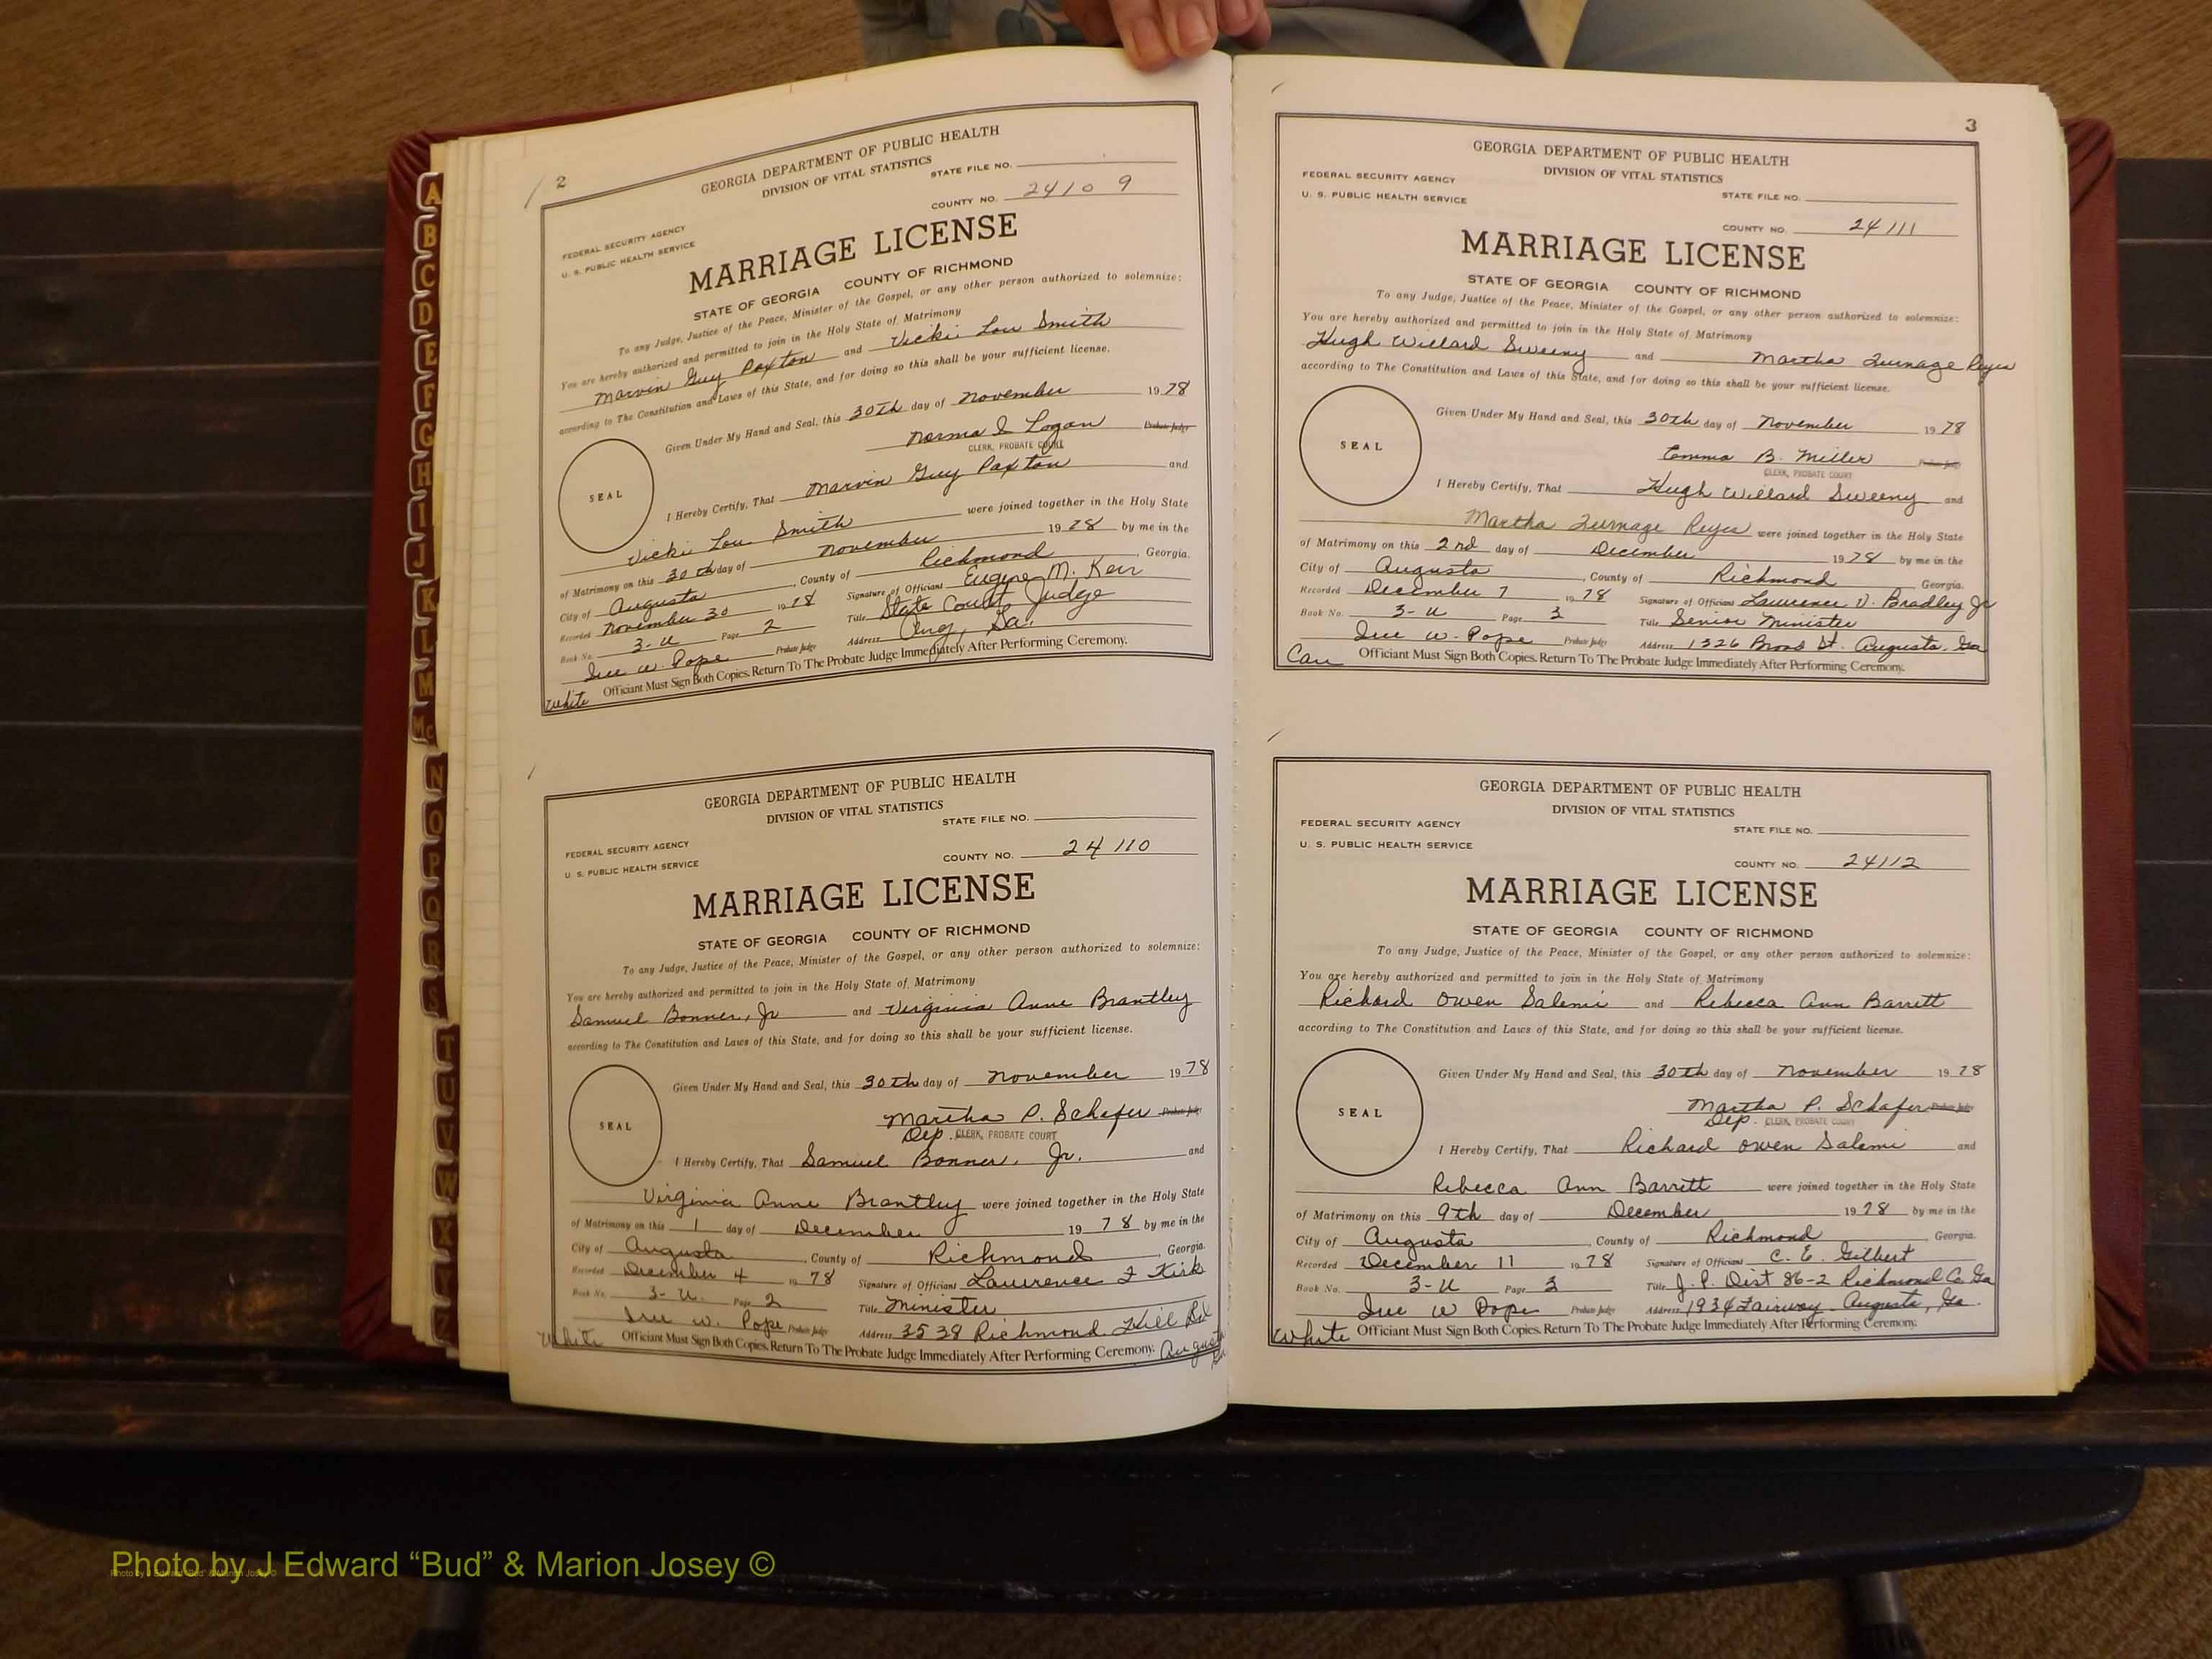 A
B
C
D
E
F
G
H
I
J
K
L
M
Mc
N
O
P
Q
R
S
T
U
V
W
X
Y
Z
2
GEORGIA DEPARTMENT OF PUBLIC HEALTH
DIVISION OF VITAL STATISTICS
STATE FILE NO.
COUNTY NO. 24109
FEDERAL SECURITY AGENCY
U. S. PUBLIC HEALTH SERVICE
MARRIAGE LICENSE
STATE OF GEORGIA COUNTY OF RICHMOND
To any Judge, Justice of the Peace, Minister of the Gospel, or any other person authorized to solemnize:
You are hereby authorized and permitted to join in the Holy State of Matrimony
Marvin Guy Paxton and Vicki Lou Smith
according to The Constitution and Laws of this State, and for doing so this shall be your sufficient license.
Given Under My Hand and Seal, this 30th day of November 1978
Norma I Logan Probate Judge
CLERK, PROBATE COURT
SEAL
I Hereby Certify, That Marvin Guy Paxton and
Vicki Lou Smith were joined together in the Holy State
of Matrimony on this 30th day of November 1978 by me in the
City of Augusta, County of Richmond, Georgia.
Recorded November 30 1978 Signature of Officiant Eugene M. Kerr
Book No. 3-U Page 2 Title State Court Judge
Sue W. Pope Probate Judge Address Aug, Ga.
Officiant Must Sign Both Copies. Return To The Probate Judge Immediately After Performing Ceremony.
White
GEORGIA DEPARTMENT OF PUBLIC HEALTH
DIVISION OF VITAL STATISTICS
STATE FILE NO.
FEDERAL SECURITY AGENCY
COUNTY NO. 24110
U. S. PUBLIC HEALTH SERVICE
MARRIAGE LICENSE
STATE OF GEORGIA COUNTY OF RICHMOND
To any Judge, Justice of the Peace, Minister of the Gospel, or any other person authorized to solemnize:
You are hereby authorized and permitted to join in the Holy State of Matrimony
Samuel Bonner, Jr and Virginia Anne Brantley
according to The Constitution and Laws of this State, and for doing so this shall be your sufficient license.
Given Under My Hand and Seal, this 30th day of November 1978
Martha P. Schafer Probate Judge
Dep. CLERK, PROBATE COURT
SEAL
I Hereby Certify, That Samuel Bonner, Jr. and
Virginia Anne Brantley were joined together in the Holy State
of Matrimony on this 1 day of December 1978 by me in the
City of Augusta, County of Richmond, Georgia.
Recorded December 4 1978 Signature of Officiant Lawrence F Kirk
Book No. 3-U. Page 2 Title Minister
Sue W. Pope Probate Judge Address 3538 Richmond Hill Rd
White Officiant Must Sign Both Copies. Return To The Probate Judge Immediately After Performing Ceremony. Augusta
Ga
3
GEORGIA DEPARTMENT OF PUBLIC HEALTH
DIVISION OF VITAL STATISTICS
FEDERAL SECURITY AGENCY
U. S. PUBLIC HEALTH SERVICE
STATE FILE NO.
COUNTY NO. 24111
MARRIAGE LICENSE
STATE OF GEORGIA COUNTY OF RICHMOND
To any Judge, Justice of the Peace, Minister of the Gospel, or any other person authorized to solemnize:
You are hereby authorized and permitted to join in the Holy State of Matrimony
Hugh Willard Sweeny and Martha Turnage Reyes
according to The Constitution and Laws of this State, and for doing so this shall be your sufficient license.
Given Under My Hand and Seal, this 30th day of November 1978
Emma B. Miller Probate Judge
CLERK, PROBATE COURT
SEAL
I Hereby Certify, That Hugh Willard Sweeny and
Martha Turnage Reyes were joined together in the Holy State
of Matrimony on this 2nd day of December 1978 by me in the
City of Augusta, County of Richmond Georgia.
Recorded December 7 1978 Signature of Officiant Lawrence V. Bradley Jr
Book No. 3-U Page 3 Title Senior Minister
Sue W. Pope Probate Judge Address 1326 Broad St. Augusta, Ga
Cau Officiant Must Sign Both Copies. Return To The Probate Judge Immediately After Performing Ceremony.
GEORGIA DEPARTMENT OF PUBLIC HEALTH
DIVISION OF VITAL STATISTICS
FEDERAL SECURITY AGENCY
STATE FILE NO.
U. S. PUBLIC HEALTH SERVICE
COUNTY NO. 24112
MARRIAGE LICENSE
STATE OF GEORGIA COUNTY OF RICHMOND
To any Judge, Justice of the Peace, Minister of the Gospel, or any other person authorized to solemnize:
You are hereby authorized and permitted to join in the Holy State of Matrimony
Richard Owen Salemi and Rebecca Ann Barrett
according to The Constitution and Laws of this State, and for doing so this shall be your sufficient license.
Given Under My Hand and Seal, this 30th day of November 1978
Martha P. Schafer Probate Judge
Dep. CLERK, PROBATE COURT
SEAL
I Hereby Certify, That Richard Owen Salemi and
Rebecca Ann Barrett were joined together in the Holy State
of Matrimony on this 9th day of December 1978 by me in the
City of Augusta, County of Richmond Georgia.
Recorded December 11 1978 Signature of Officiant C. E. Gilbert
Book No. 3-U Page 3 Title J.P. Dist 86-2 Richmond Co Ga
Sue W Pope Probate Judge Address 1934 Fairway - Augusta, Ga.
White Officiant Must Sign Both Copies. Return To The Probate Judge Immediately After Performing Ceremony.
Photo by J Edward “Bud” & Marion Josey ©
Photo by J Edward “Bud” & Marion Josey ©